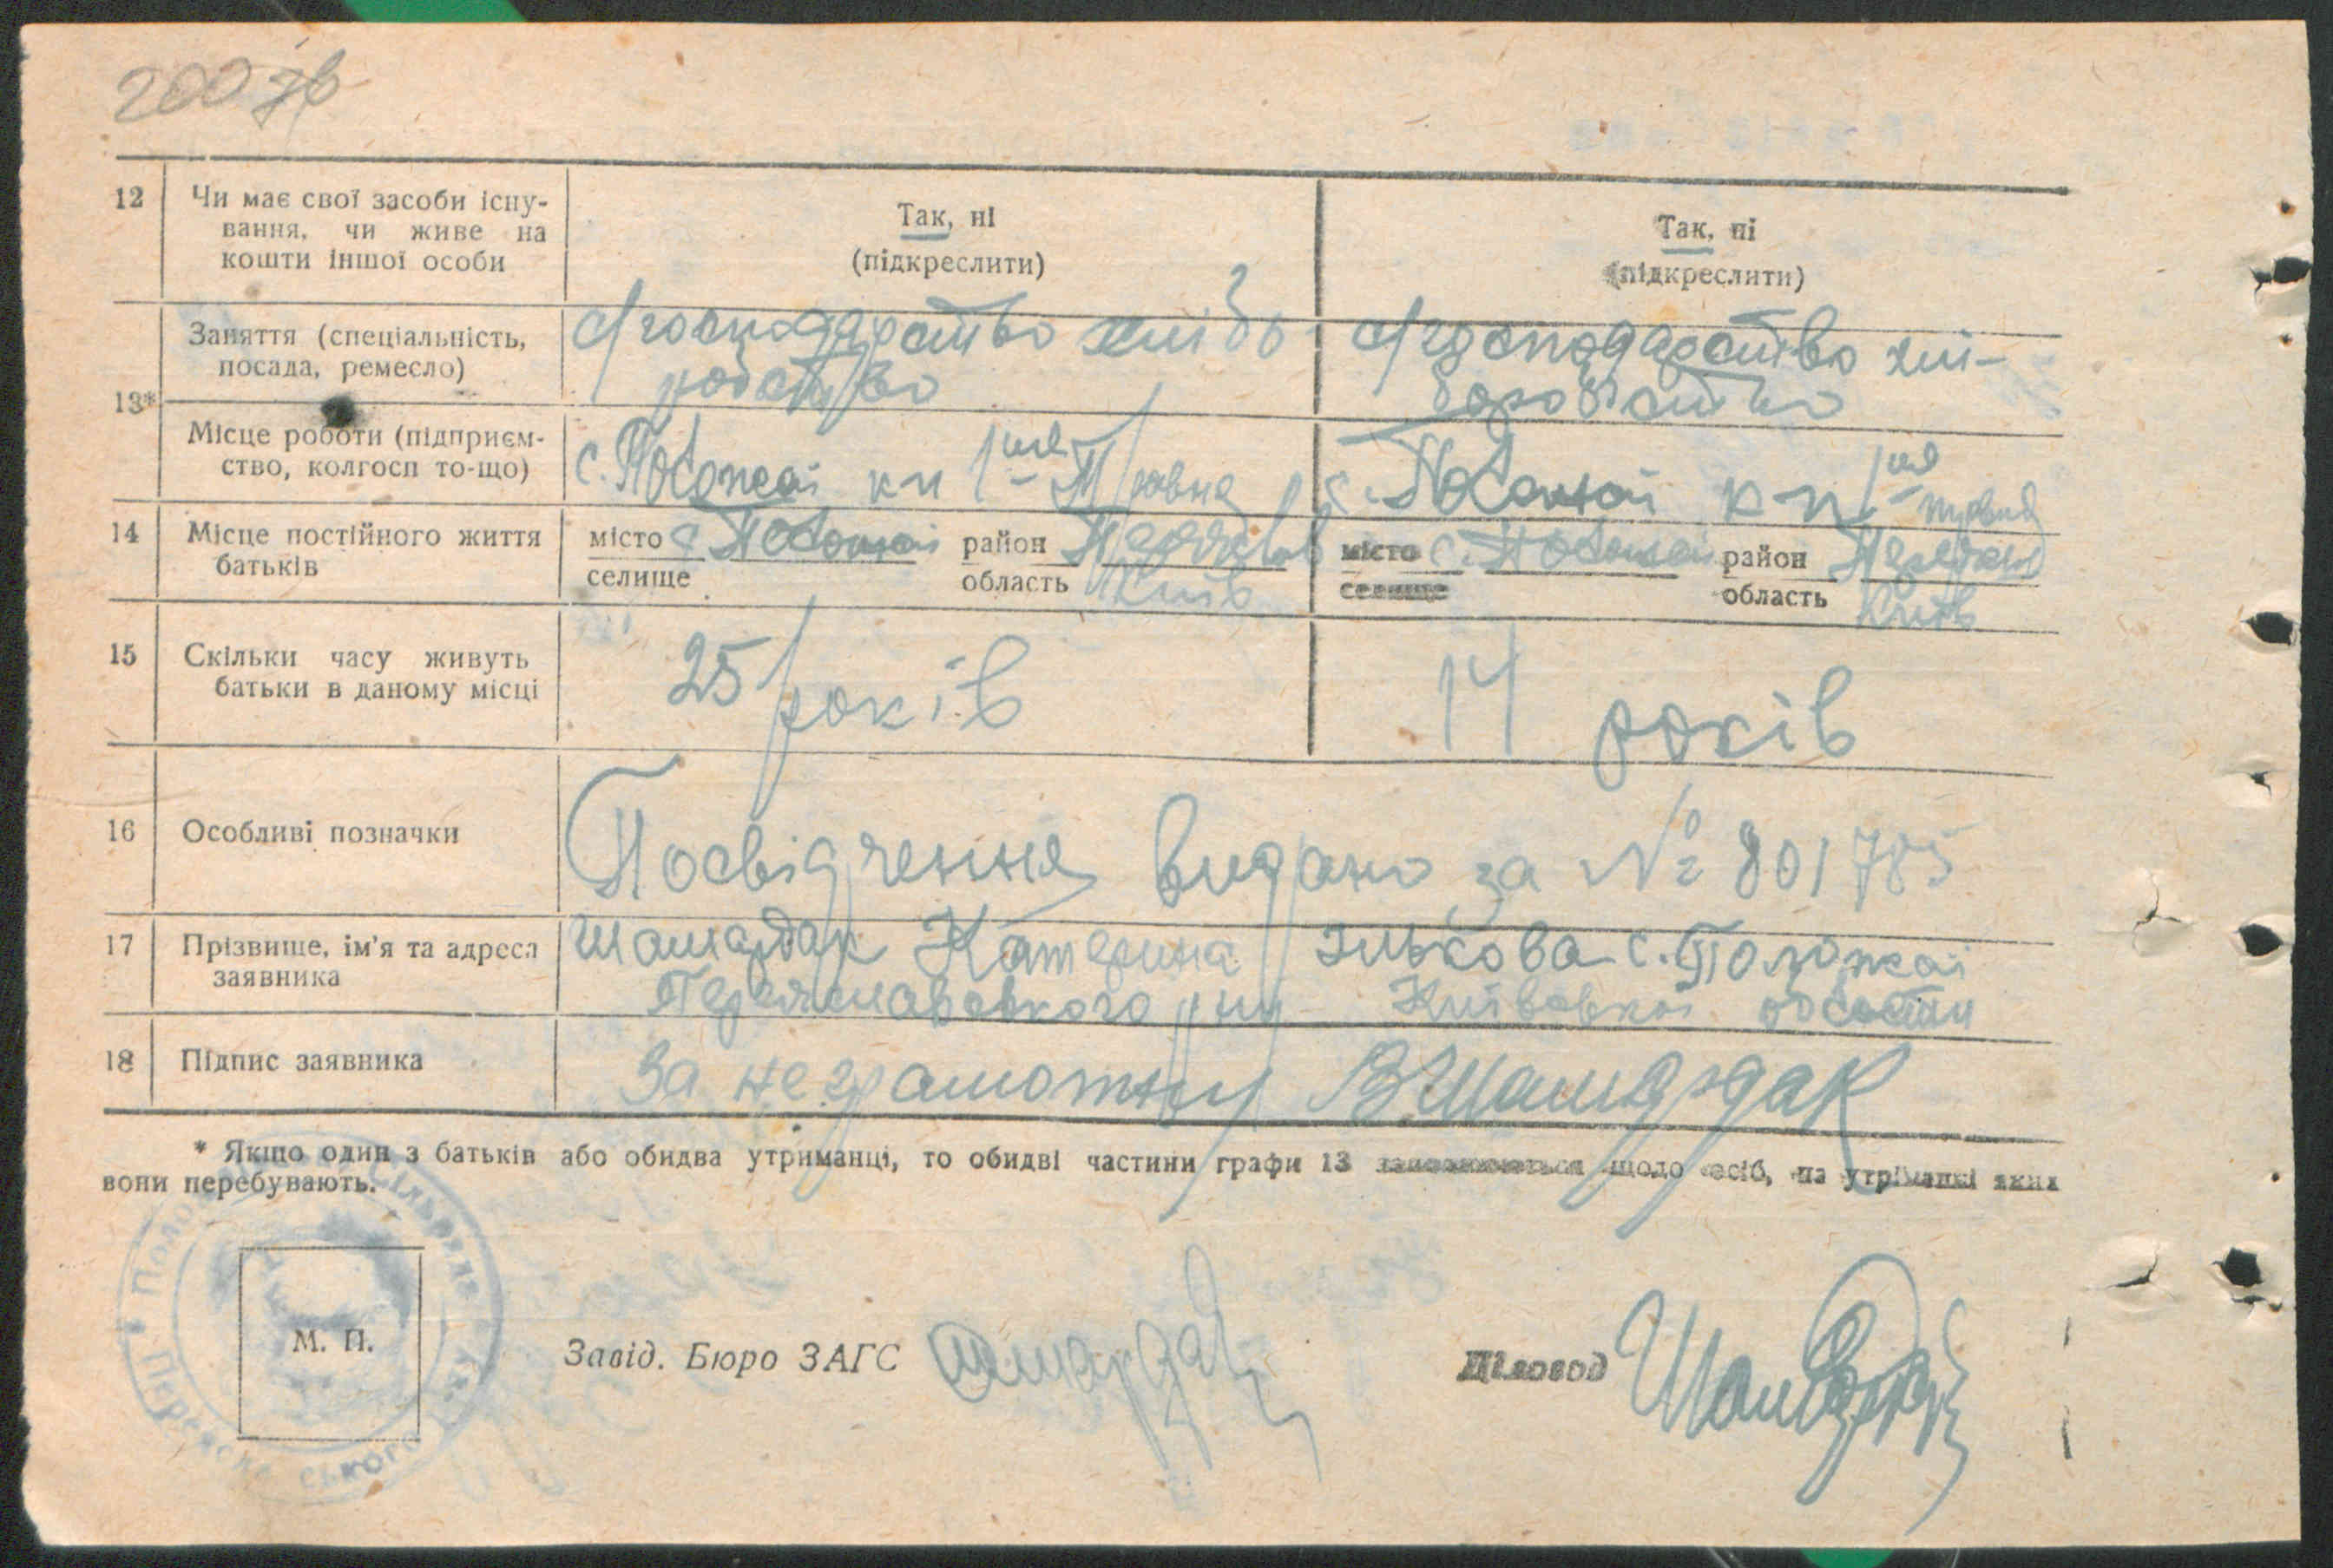 200 зв
12 Чи має свої засоби існу-
вання, чи живе на
кошти іншої особи
Так, ні
(підкреслити)
Так, ні
(підкреслити)
13*
Заняття (спеціальність,
посада, ремесло)
с/господарство хлібо
робство
с/господарство хлі-
боробство
Місце роботи (підприєм-
ство, колгосп то-що)
с. Положаї кп 1ше Травня
с. Положаї кп 1ше травня
14 Місце постійного життя
батьків
місто с. Положаї район
селище область Київ
місто с. Положаї район
селище область Київ
15 Скільки часу живуть
батьки в даному місці
25 років
14 років
16 Особливі позначки
Посвідчення видано за № 801785
17 Прізвище, ім'я та адреса
заявника
Шамардак Катерина Ількова с. Положаї
Переяславського р-ну Київської області
18 Підпис заявника
За неграмотну В Шамардак
* Якщо один з батьків або обидва утриманці, то обидві частини графи 13 заповнюються щодо осіб, на утриманні яких
вони перебувають.
М. П.
Завід. Бюро ЗАГС
Діловод